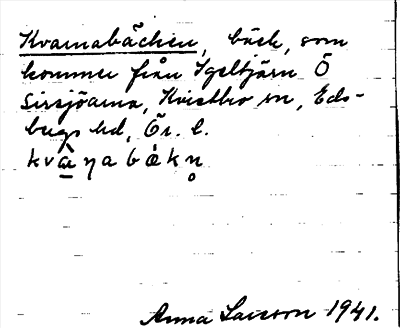 Kvarnabäcken, bäck, som
kommer från Igeltjärn Ö
Sirsjöarna, Kvistbro sn, Eds-
bergs hd, Ör. l.
kvàṇabǽkn̥
Anna Larsson 1941.